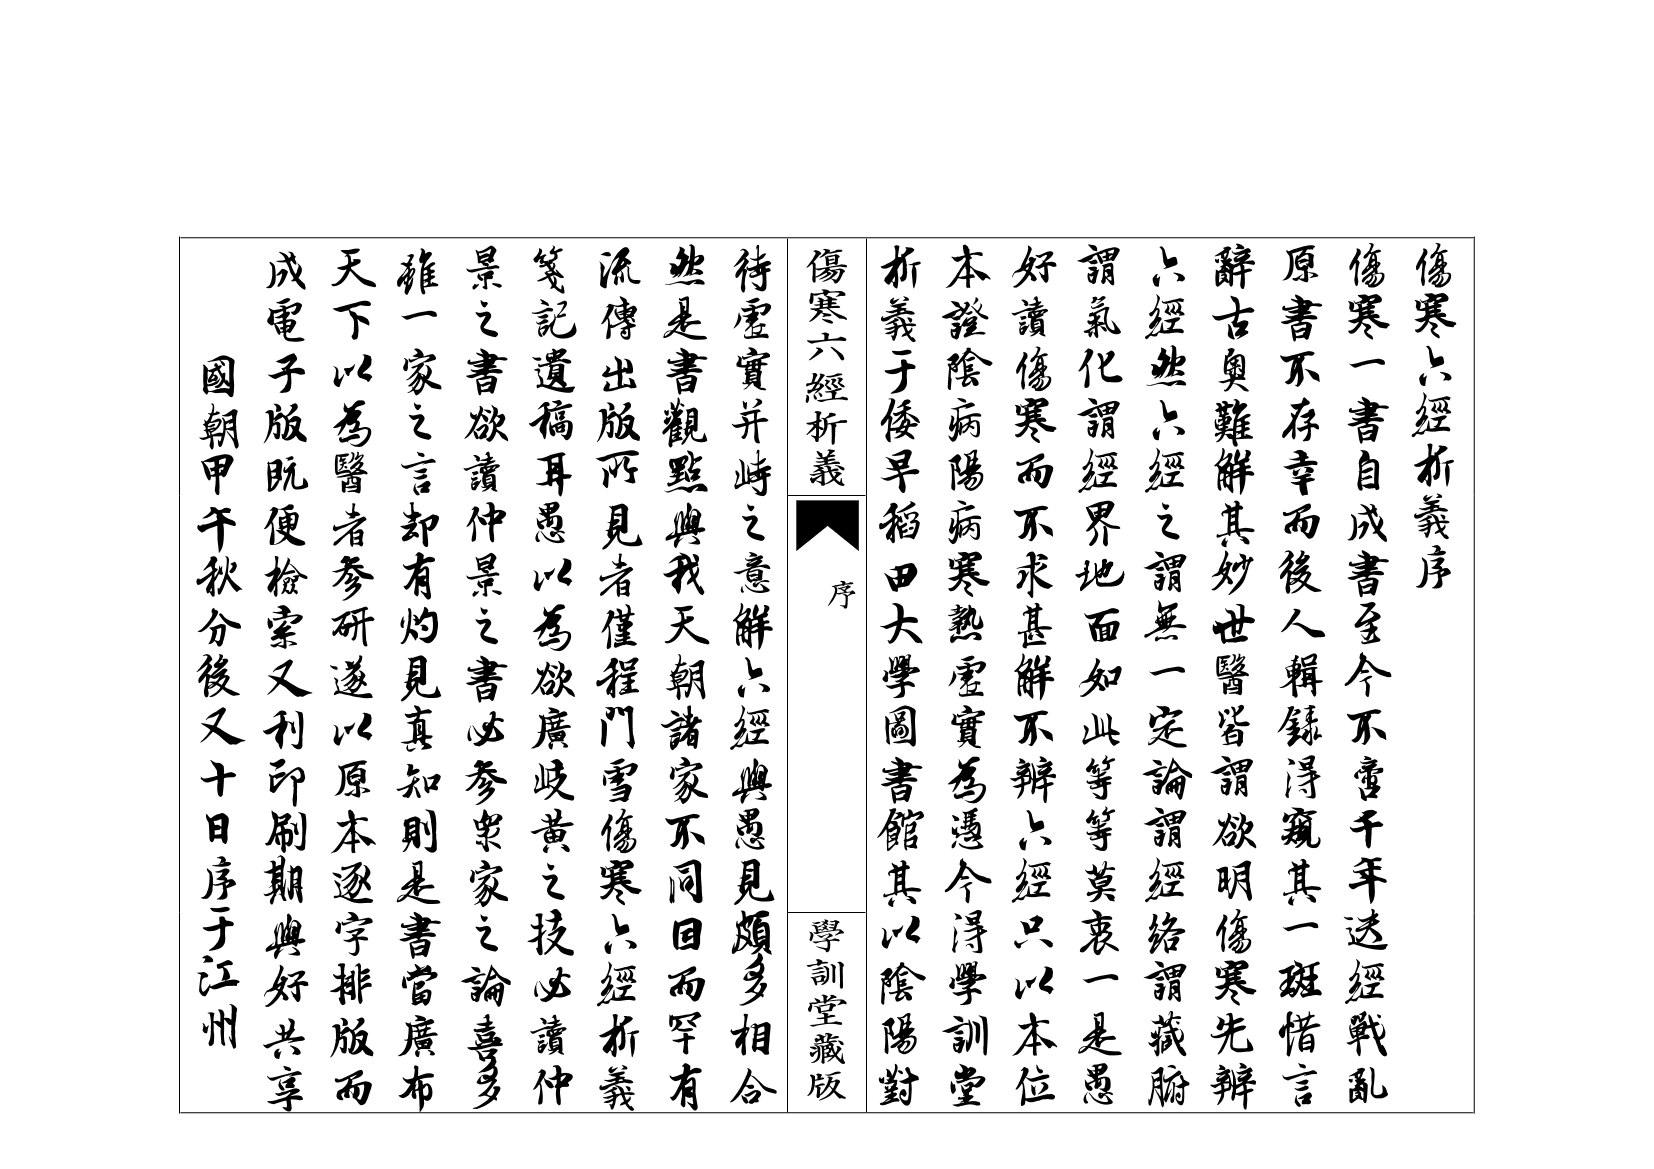 傷寒六經析義序
傷寒一書自成書至今不啻千年迭經戰亂
原書不存幸而後人輯錄得窺其一斑惜言
辭古奧難解其妙世醫皆謂欲明傷寒先辨
六經然六經之謂無一定論謂經絡謂藏腑
謂氣化謂經界地面如此等等莫衷一是愚
好讀傷寒而不求甚解不辨六經只以本位
本證陰病陽病寒熱虛實為憑今得學訓堂
析義于倭早稻田大學圖書館其以陰陽對
傷寒六經析義
序
學訓堂藏版
待虛實并峙之意解六經與愚見頗多相合
然是書觀點與我天朝諸家不同因而罕有
流傳出版所見者僅程門雪傷寒六經析義
箋記遺稿耳愚以為欲廣岐黃之技必讀仲
景之書欲讀仲景之書必參衆家之論喜多
雖一家之言却有灼見真知則是書當廣布
天下以為醫者參研遂以原本逐字排版而
成電子版既便檢索又利印刷期與好共享
國朝甲午秋分後又十日序于江州